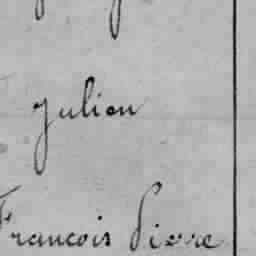 Julien
François Pierre